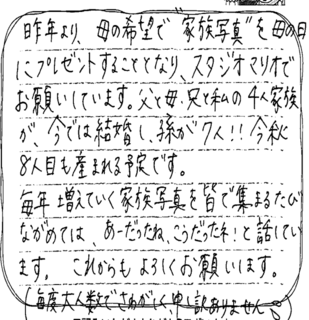 昨年より、母の希望で"家族写真"を母の日
にプレゼントすることとなり、スタジオマリオで
お願いしています。父と母、兄と私の4人家族
が、今では結婚し、孫が7人!!今秋
8人目も産まれる予定です。
毎年増えていく家族写真を皆で集まるたび
ながめては、あーだったね、こうだったネ!と話してい
ます。これからもよろしくお願いします。
(毎度大人数でさわがしく申し訳ありません。